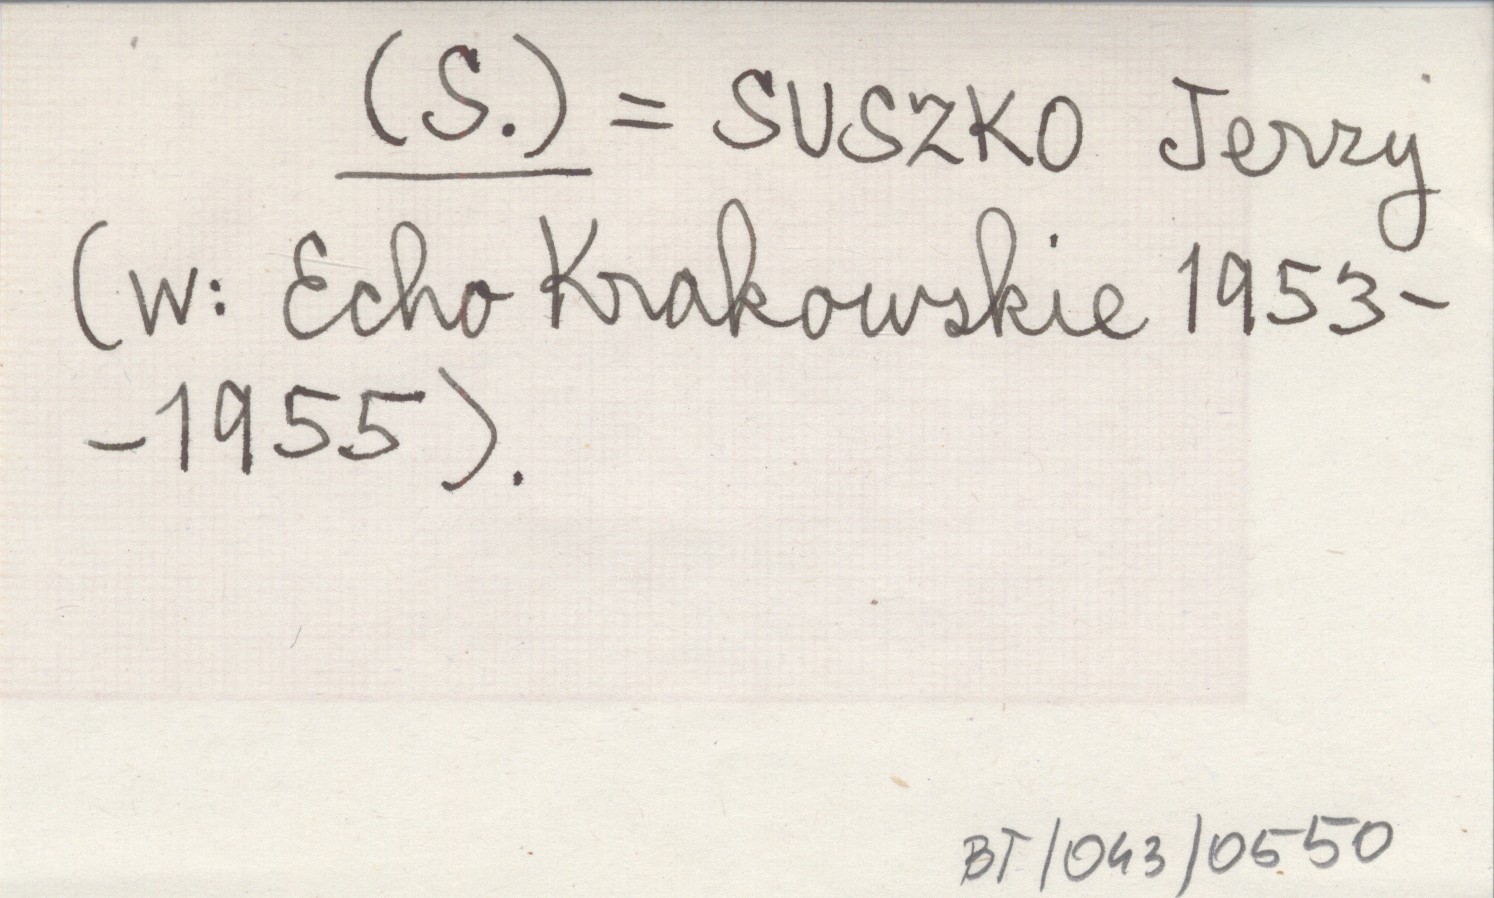 (S.) = SUSZKO Jerzy
(w: Echo Krakowskie 1953-
-1955).
BT/043/0550